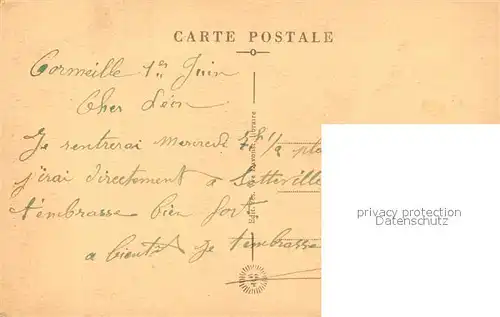 CARTE POSTALE
Cormeille 1er Juin
Cher Léon
Je rentrerai Mercredi 7h 1/2
j'irai directement a Sotteville
t'embrasse bien fort
a bientôt Je t'embrasse
privacy protection
Datenschutz